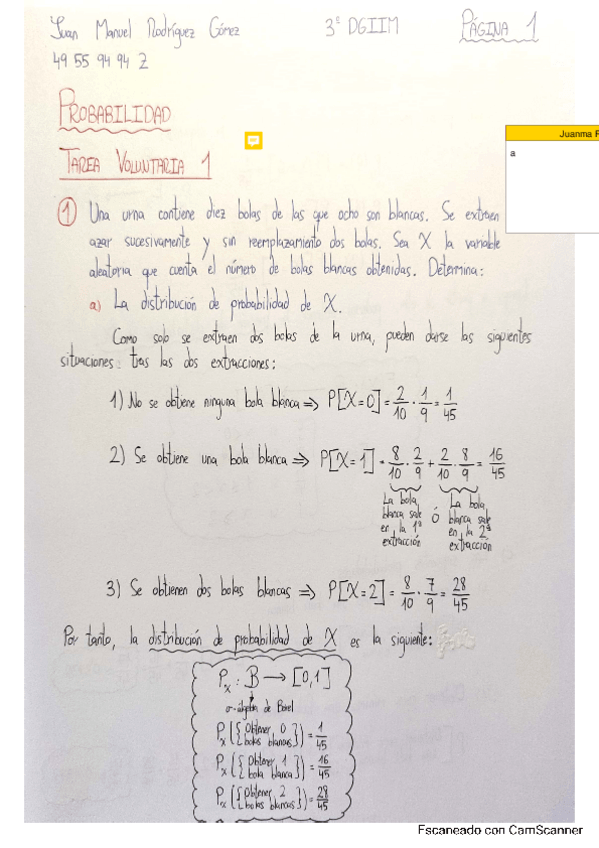 Juan Manuel Rodríguez Gómez 3º DGIIM PÁGINA 1
49 55 94 94 Z
PROBABILIDAD
Juanma R
a
TAREA VOLUNTARIA 1
① Una urna contiene diez bolas de las que ocho son blancas. Se extraen
azar sucesivamente y sin reemplazamiento dos bolas. Sea X la variable
aleatoria que cuenta el número de bolas blancas obtenidas. Determina:
a) La distribución de probabilidad de X.
Como solo se extraen dos bolas de la urna, pueden darse las siguientes
situaciones tras las dos extracciones:
1) No se obtiene ninguna bola blanca ⇒ P[X=0] = 2/10 · 1/9 = 1/45
2) Se obtiene una bola blanca ⇒ P[X=1] = 8/10 · 2/9 + 2/10 · 8/9 = 16/45
La bola blanca sale en la 1ª extracción ó La bola blanca sale en la 2ª extracción
3) Se obtienen dos bolas blancas ⇒ P[X=2] = 8/10 · 7/9 = 28/45
Por tanto, la distribución de probabilidad de X es la siguiente:
Pₓ : B → [0,1]
σ-álgebra de Borel
Pₓ({Obtener 0 bolas blancas}) = 1/45
Pₓ({Obtener 1 bola blanca}) = 16/45
Pₓ({Obtener 2 bolas blancas}) = 28/45
Escaneado con CamScanner